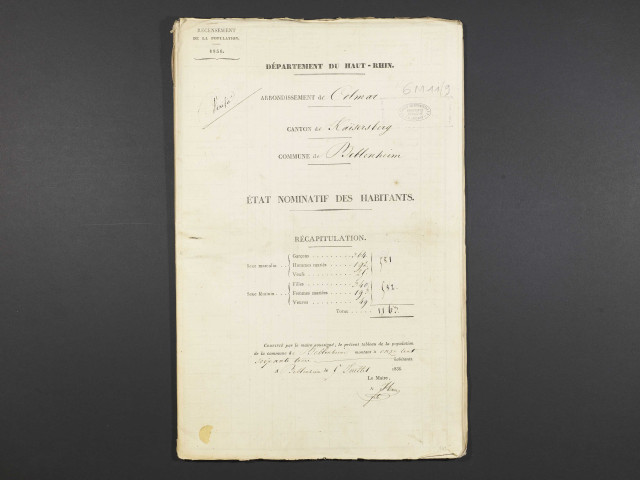 RECENSEMENT
DE LA POPULATION.
1836.
DÉPARTEMENT DU HAUT-RHIN.
6M119
ARRONDISSEMENT de Colmar
CANTON de Kaisersberg
COMMUNE de Beblenheim
ÉTAT NOMINATIF DES HABITANTS.
RÉCAPITULATION.
Sexe masculin
Garçons
Hommes mariés
Veufs
551
Sexe féminin
Filles 340
Femmes mariées 193
Veuves 49
Total 1163
Certifié par le maire soussigné, le présent tableau de la population
de la commune de Beblenheim montant à onze cent
soixante trois habitants.
à Beblenheim le Juillet 1836
Le Maire,